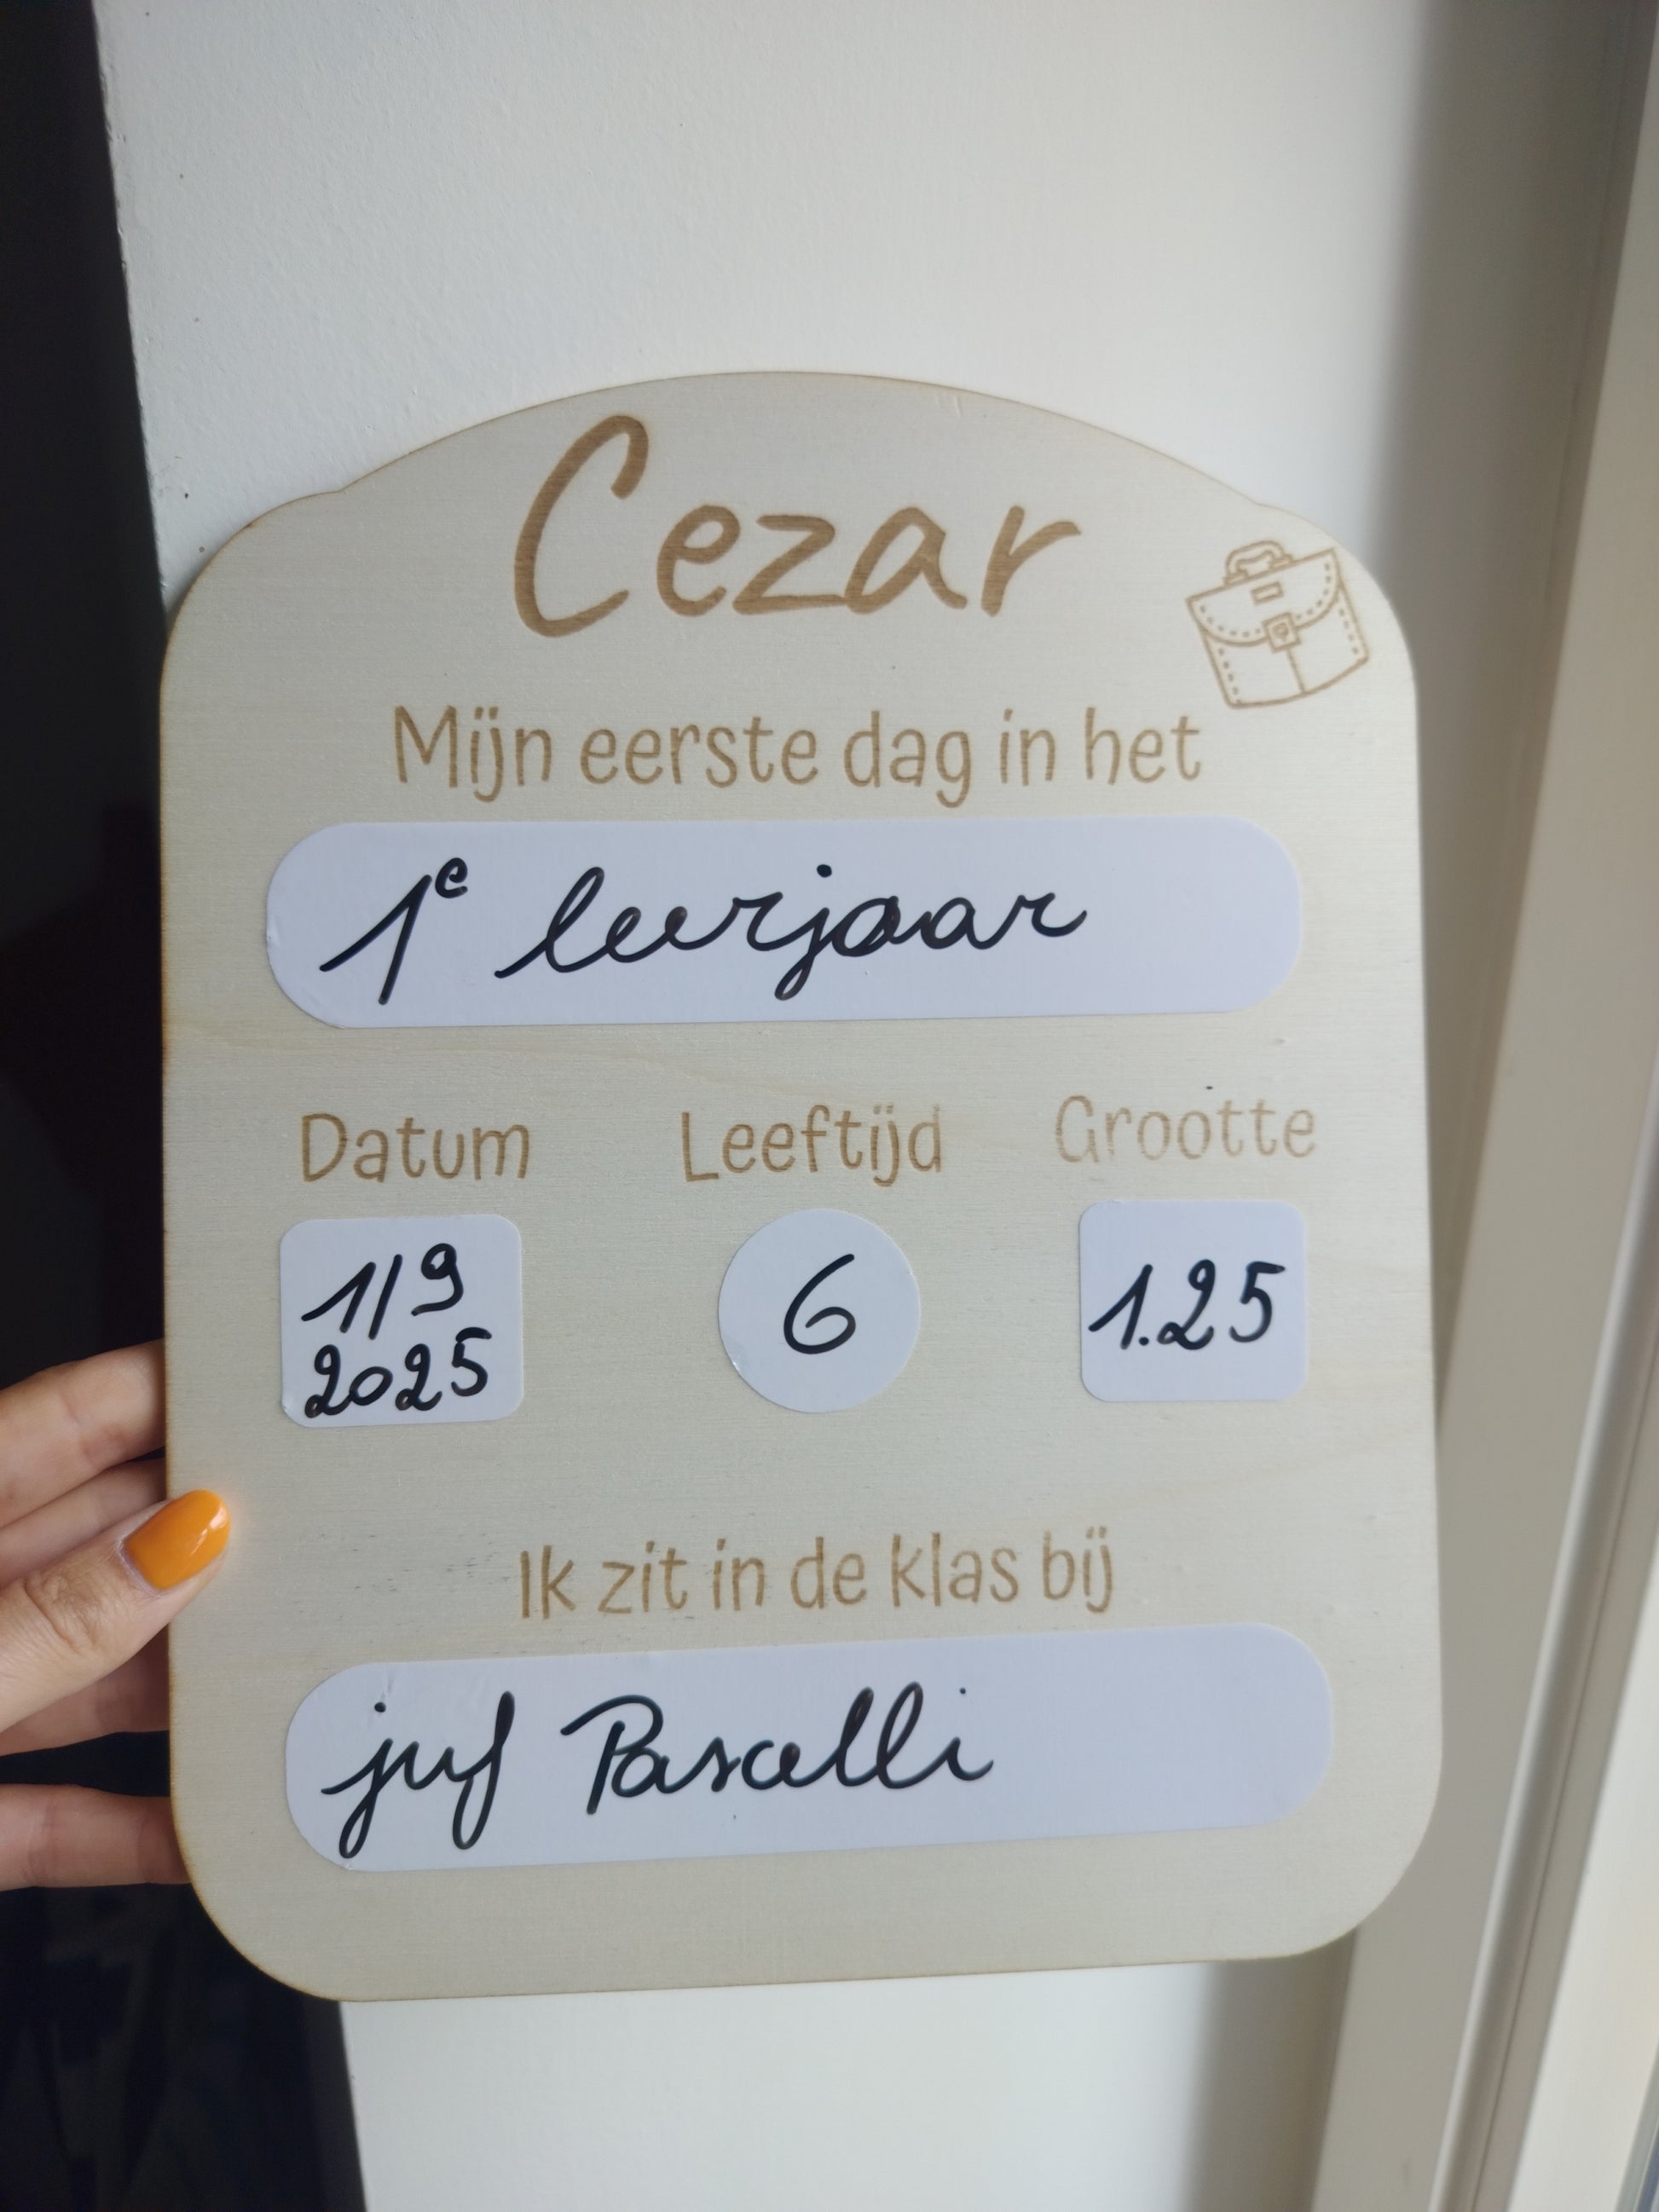 Cezar
Mijn eerste dag in het
1e leerjaar
Datum Leeftijd Grootte
1/9
2025
6
1.25
Ik zit in de klas bij
juf Pascalli